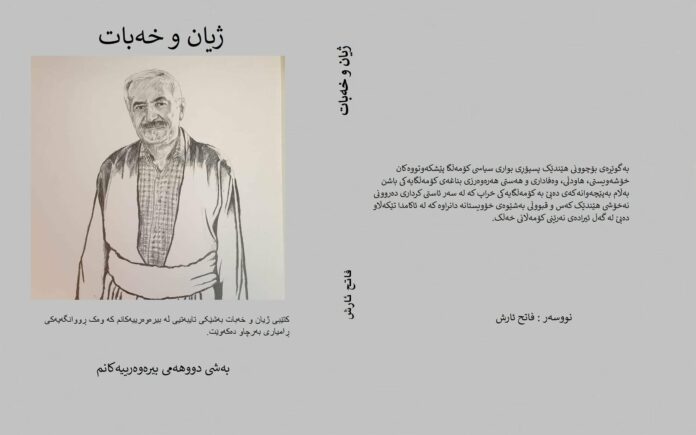 ژیان و خەبات
کتێبی ژیان و خەبات بەشێکی تایبەتیی لە بیرەوەرییەکانم کە وەک ڕووانگەیەکی
ڕامیاری بەرچاو دەکەوێت.
بەشی دووهەمی بیرەوەرییەکانم
ژیان و خەبات
فاتح ئارش
بەگوێرەی بۆچوونی هێندێک پسپۆری بواری سیاسی کۆمەڵگا پێشکەوتووەکان
خۆشەویستی، هاودڵی، وەفاداری و هەستی هەرەوەرزی بناغەی کۆمەڵگایەکی باشن
بەڵام بەپێچەوانەکەی دەبێ بە کۆمەڵگایەکی خراپ کە لە سەر ئاستی کرداری دەروونی
نەخۆشی هێندێک کەس و قبووڵی بەشێوەی خۆویستانە دانراوە کە لە ئاکامدا تێکەڵاو
دەبێ لە گەل ئیرادەی نەرێنی کۆمەڵانی خەلک.
نووسەر : فاتح ئارش